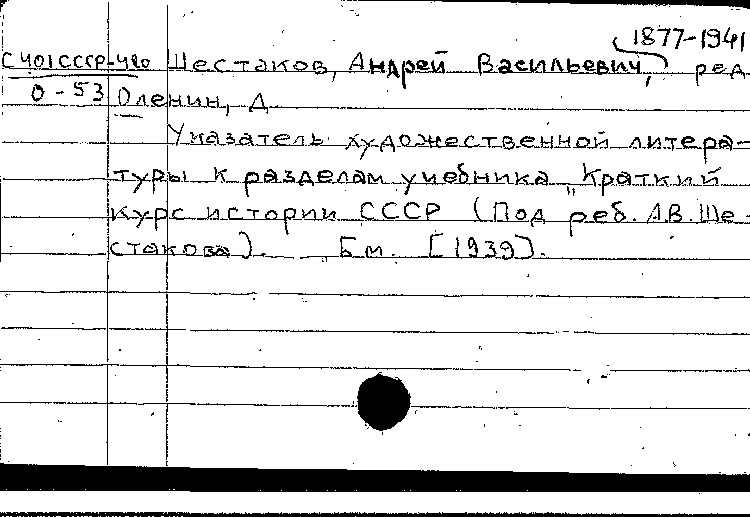 1877-1941
С 401СССР-420 Шестаков, Андрей Васильевич, ред
О-53 Оленин, Д
Указатель художественной литера-
туры к разделам учебника „Краткий
курс истории СССР (Под реб. А.В. Ше-
стакова). Бм. [1939].